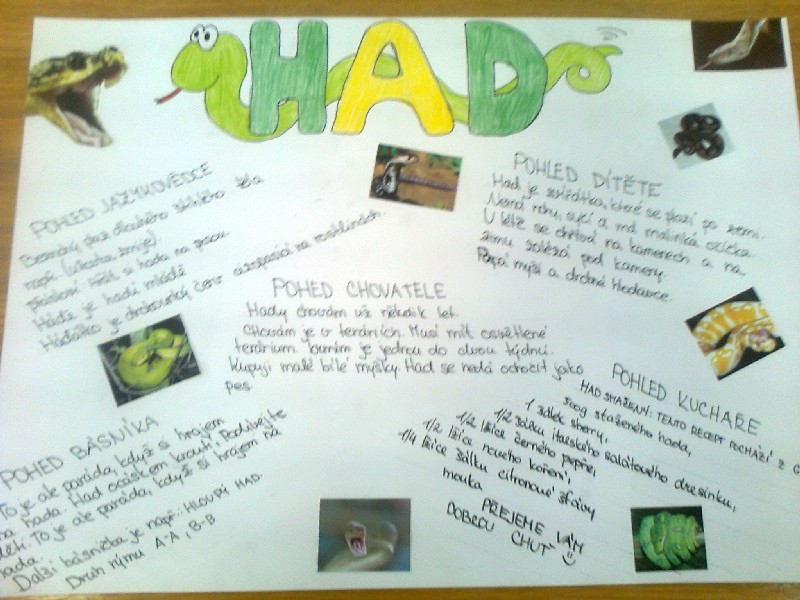 HAD
POHLED JAZYKOVĚDCE
Beznohý plaz dlouhého štíhlého těla
např. (užovka, zmije).
přísloví: Hřát si hada na prsou.
Hádě je hadí mládě
Háďátko je drobounký červ cizopasící na rostlinách.
POHLED DÍTĚTE
Had je zvířátko, které se plazí po zemi.
Nemá nohy, syčí a má malinká očička.
V létě se chrtová na kamenech a na
zimu zalézá pod kameny.
Papá myši a drobné hlodavce.
POHED CHOVATELE
Hady chovám už několik let.
Chovám je v teráriích. Musí mít osvětlené
terárium. Krmím je jednou do dvou týdnů.
Kupuji malé bílé myšky. Had se nedá ochočit jako
pes.
POHED BÁSNÍKA
To je ale paráda, když si hrajem
na hada. Had ocáskem kroutí. Podívejte
děti. To je ale paráda, když si hrajem na
hada.
Další básnička je např.: HLOUPÝ HAD.
Druh rýmu A-A, B-B
POHLED KUCHAŘE
HAD SMAŽENÝ: TENTO RECEPT POCHÁZÍ Z
500g staženého hada,
1 šálek sherry,
1/2 šálku italského salátového dresinku,
1/2 lžíce černého pepře,
1/2 lžíce nového koření,
1/4 lžíce šálku citronové šťávy
mouka
PŘEJEME VÁM
DOBROU CHUŤ